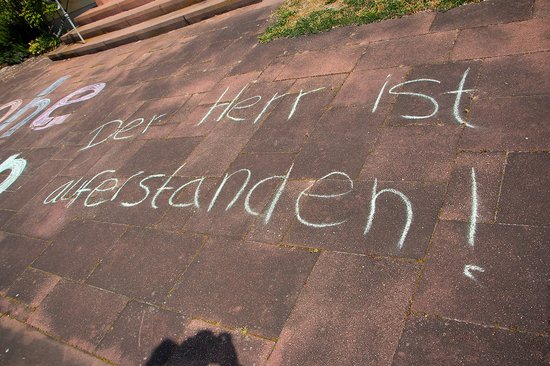 ohe
Der Herr ist
auferstanden!